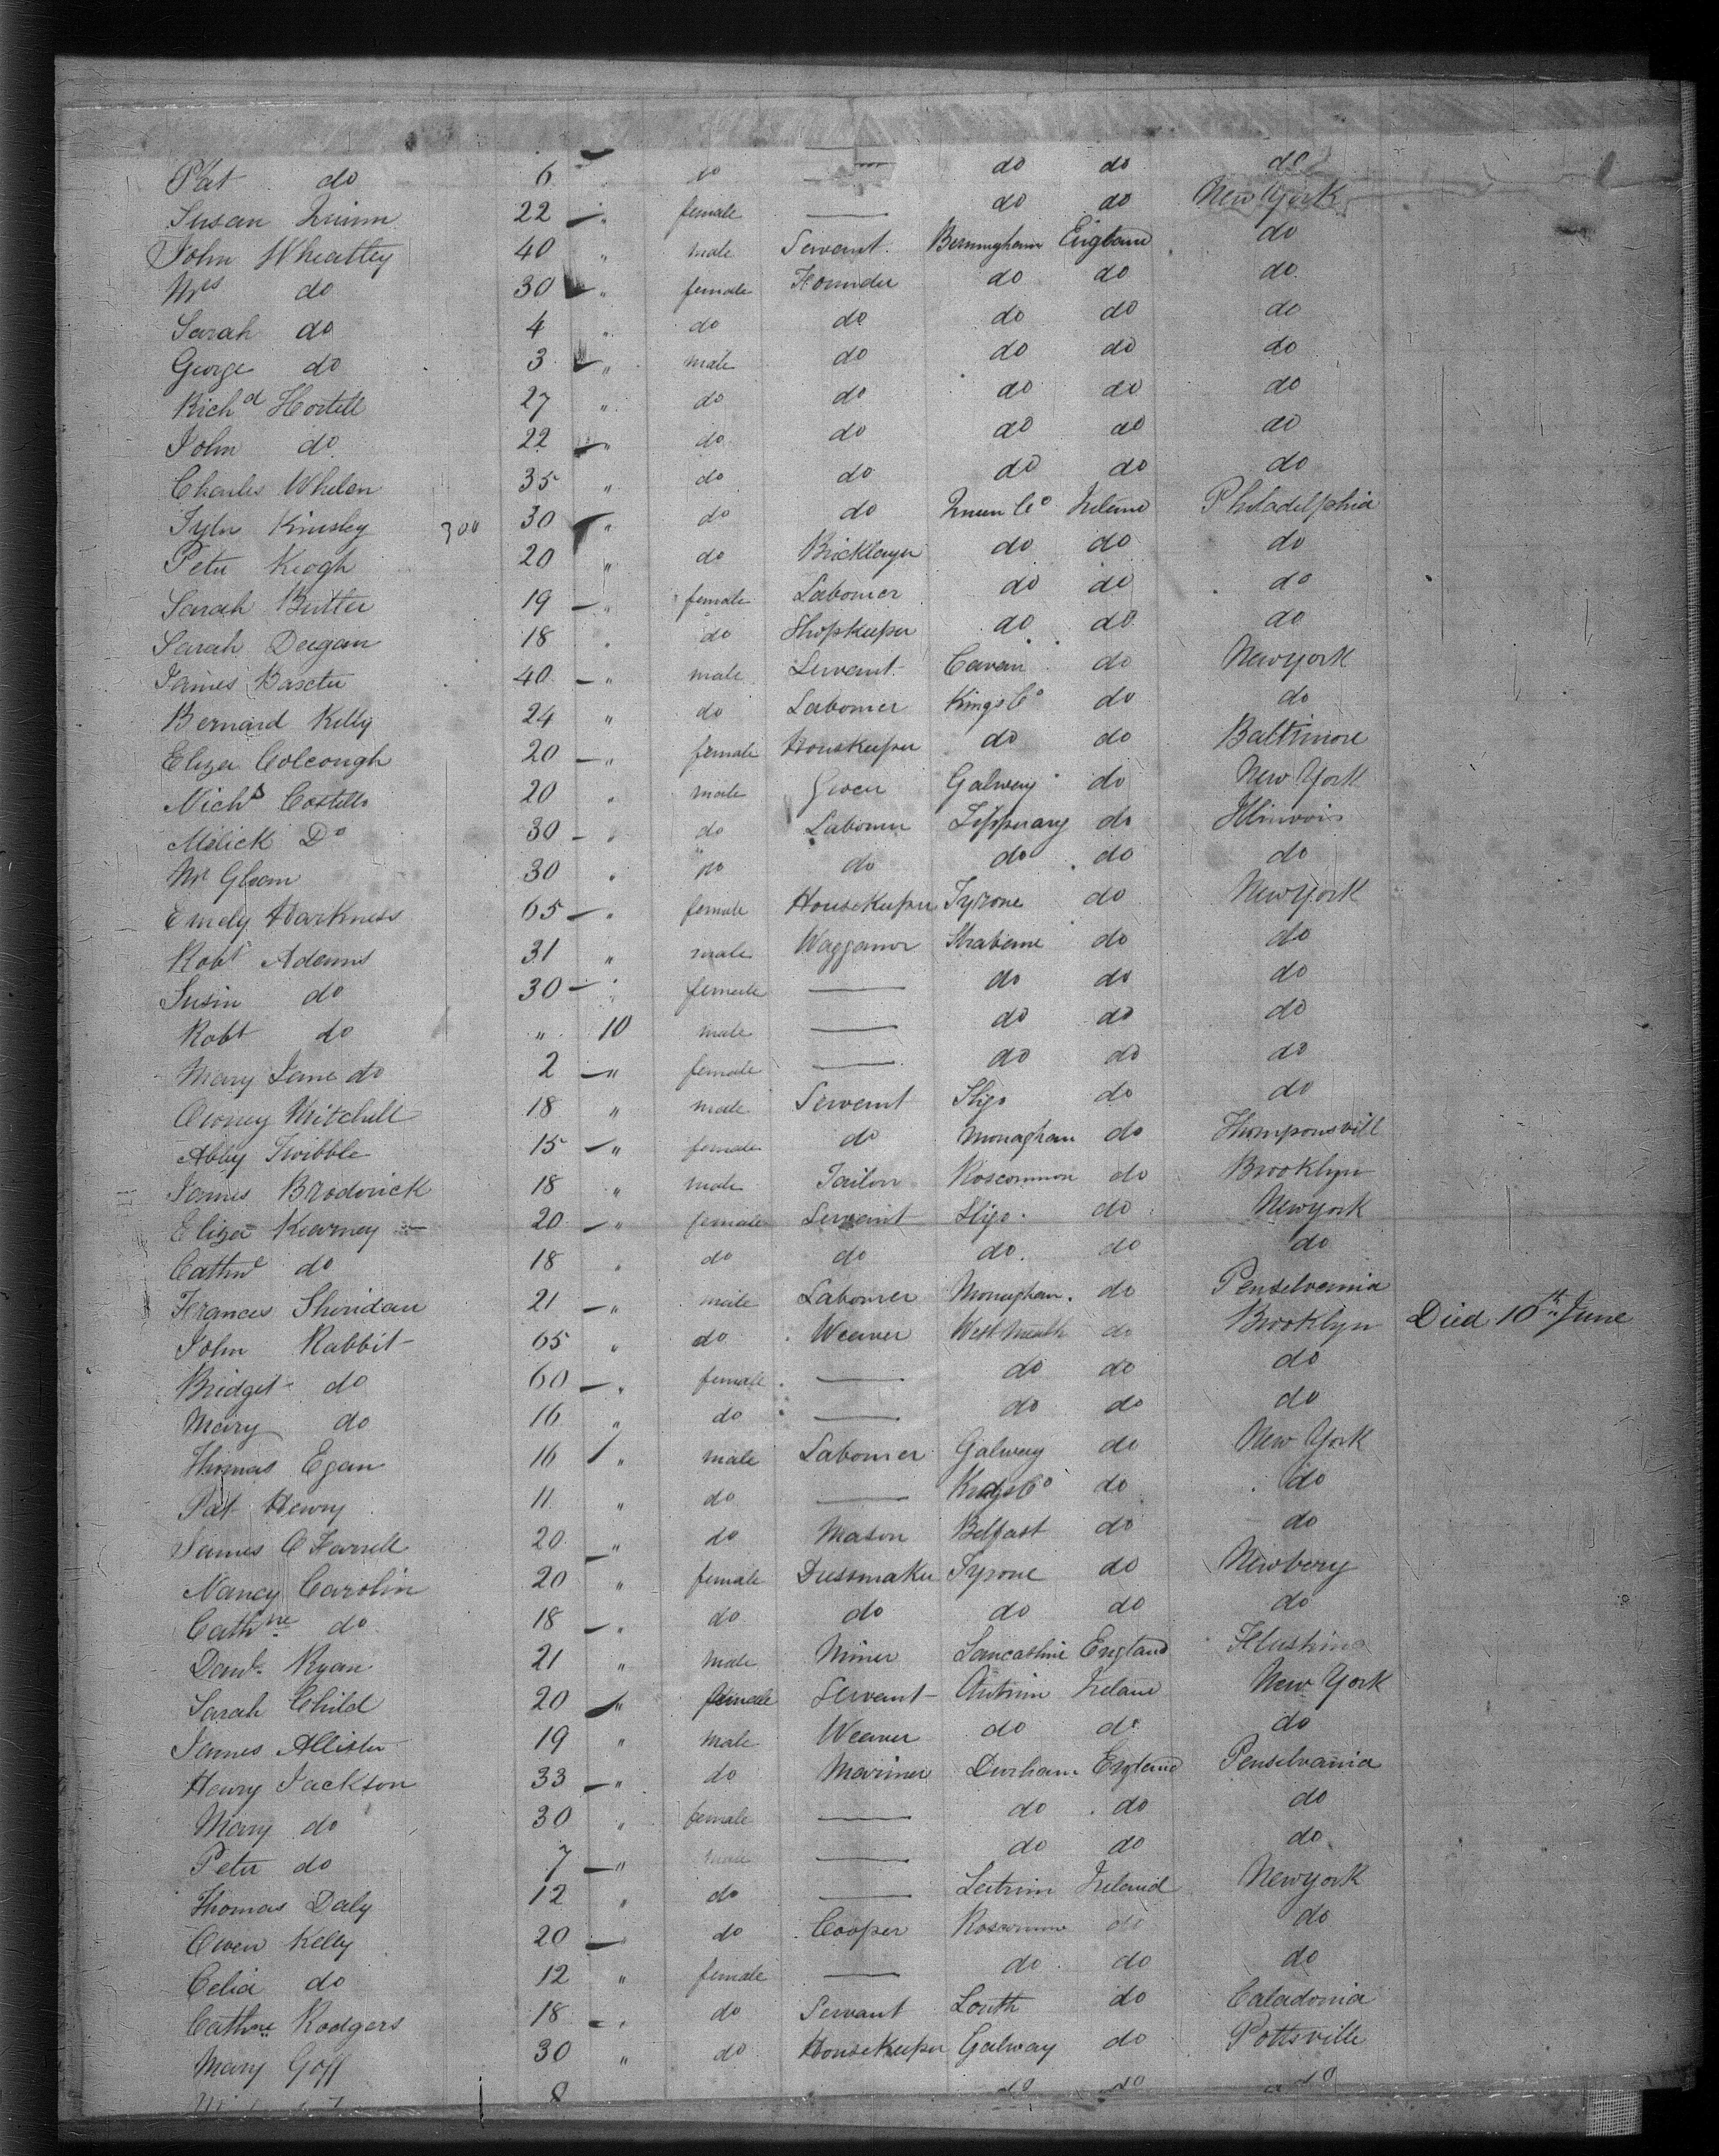 Pat do 6 " do — do do do
Susan Quinn 22 " female — do do New York
John Wheatley 40 " male Servant Bermingham England do
Mrs do 30 " female Founder do do do
Sarah do 4 " do do do do do
George do 3 " male do do do do
Richd Hostell 27 " do do do do do
John do 22 " do do do do do
Charles Whelan 35 " do do do do do
Kinsley 300 30 " do do Queen Co Ireland Philadelphia
Peter Keogh 20 " do Bricklayer do do do
Sarah Butler 19 " female Labourer do do do
Sarah Deegan 18 " do Shopkeeper do do do
James Baxter 40 " male Servant Cavan do New york
Bernard Kelly 24 " do Labourer Kings Co do do
Eliza Colcough 20 " female Housekeeper do do Baltimore
Nichs Costello 20 " male Grocer Galway do New York
Melick Do 30 " do Labourer Tipperary do Illinois
Mr 30 " do do do do do
Emely Harkness 65 " female Housekeeper Tyrone do New york
Robt Adams 31 " male Waggoner Strabane do do
Susin do 30 " female — do do do
Robt do " 10 male — do do do
Mary Jane do 2 " female — do do do
Owney Mitchell 18 " male Servant Sligo do do
Abby Twibble 15 " female do Monaghan do Thomponsvill
James Broderick 18 " male Tailor Roscommon do Brooklyn
Eliza Kearney 20 " female Servant Sligo do New york
Cathne do 18 " do do do do do
Frances Sheridan 21 " male Labourer Monaghan do Penselvania
John Rabbit 65 " do Weaver West Meath do Brooklyn Died 10th June
Bridget do 60 " female — do do do
Mary do 16 " do — do do do
Thomas Egan 16 " male Labourer Galway do New York
Pat Henry 11 " do — Kings Co do do
James O Farrell 20 " do Mason Belfast do do
Nancy Carolin 20 " female Dressmaker Tyrone do Newbery
Cathne do 18 " do do do do do
Danl Ryan 21 " male Miner Lancashire England Flushing
Sarah Child 20 " female Servant Antrim Ireland New York
James Allister 19 " male Weaver do do do
Henry Jackson 33 " do Mariner Durham England Penselvania
Mary do 30 " female — do do do
Peter do 7 " male — do do do
Thomas Daly 12 " do — Leitrim Ireland New york
Owen Kelly 20 " do Cooper Roscommon do do
Celia do 12 " female — do do do
Cathne Rodgers 18 " do Servant Louth do Caladonia
Mary Goff 30 " do Housekeeper Galway do Pottsville
8 do do do